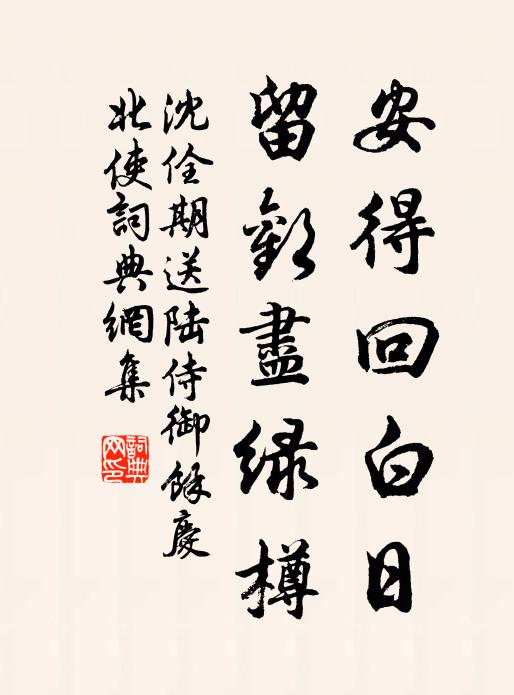 安得回白日
留歡盡綠樽
沈佺期送陸侍御餘慶
北使詞典網集
詞典網印